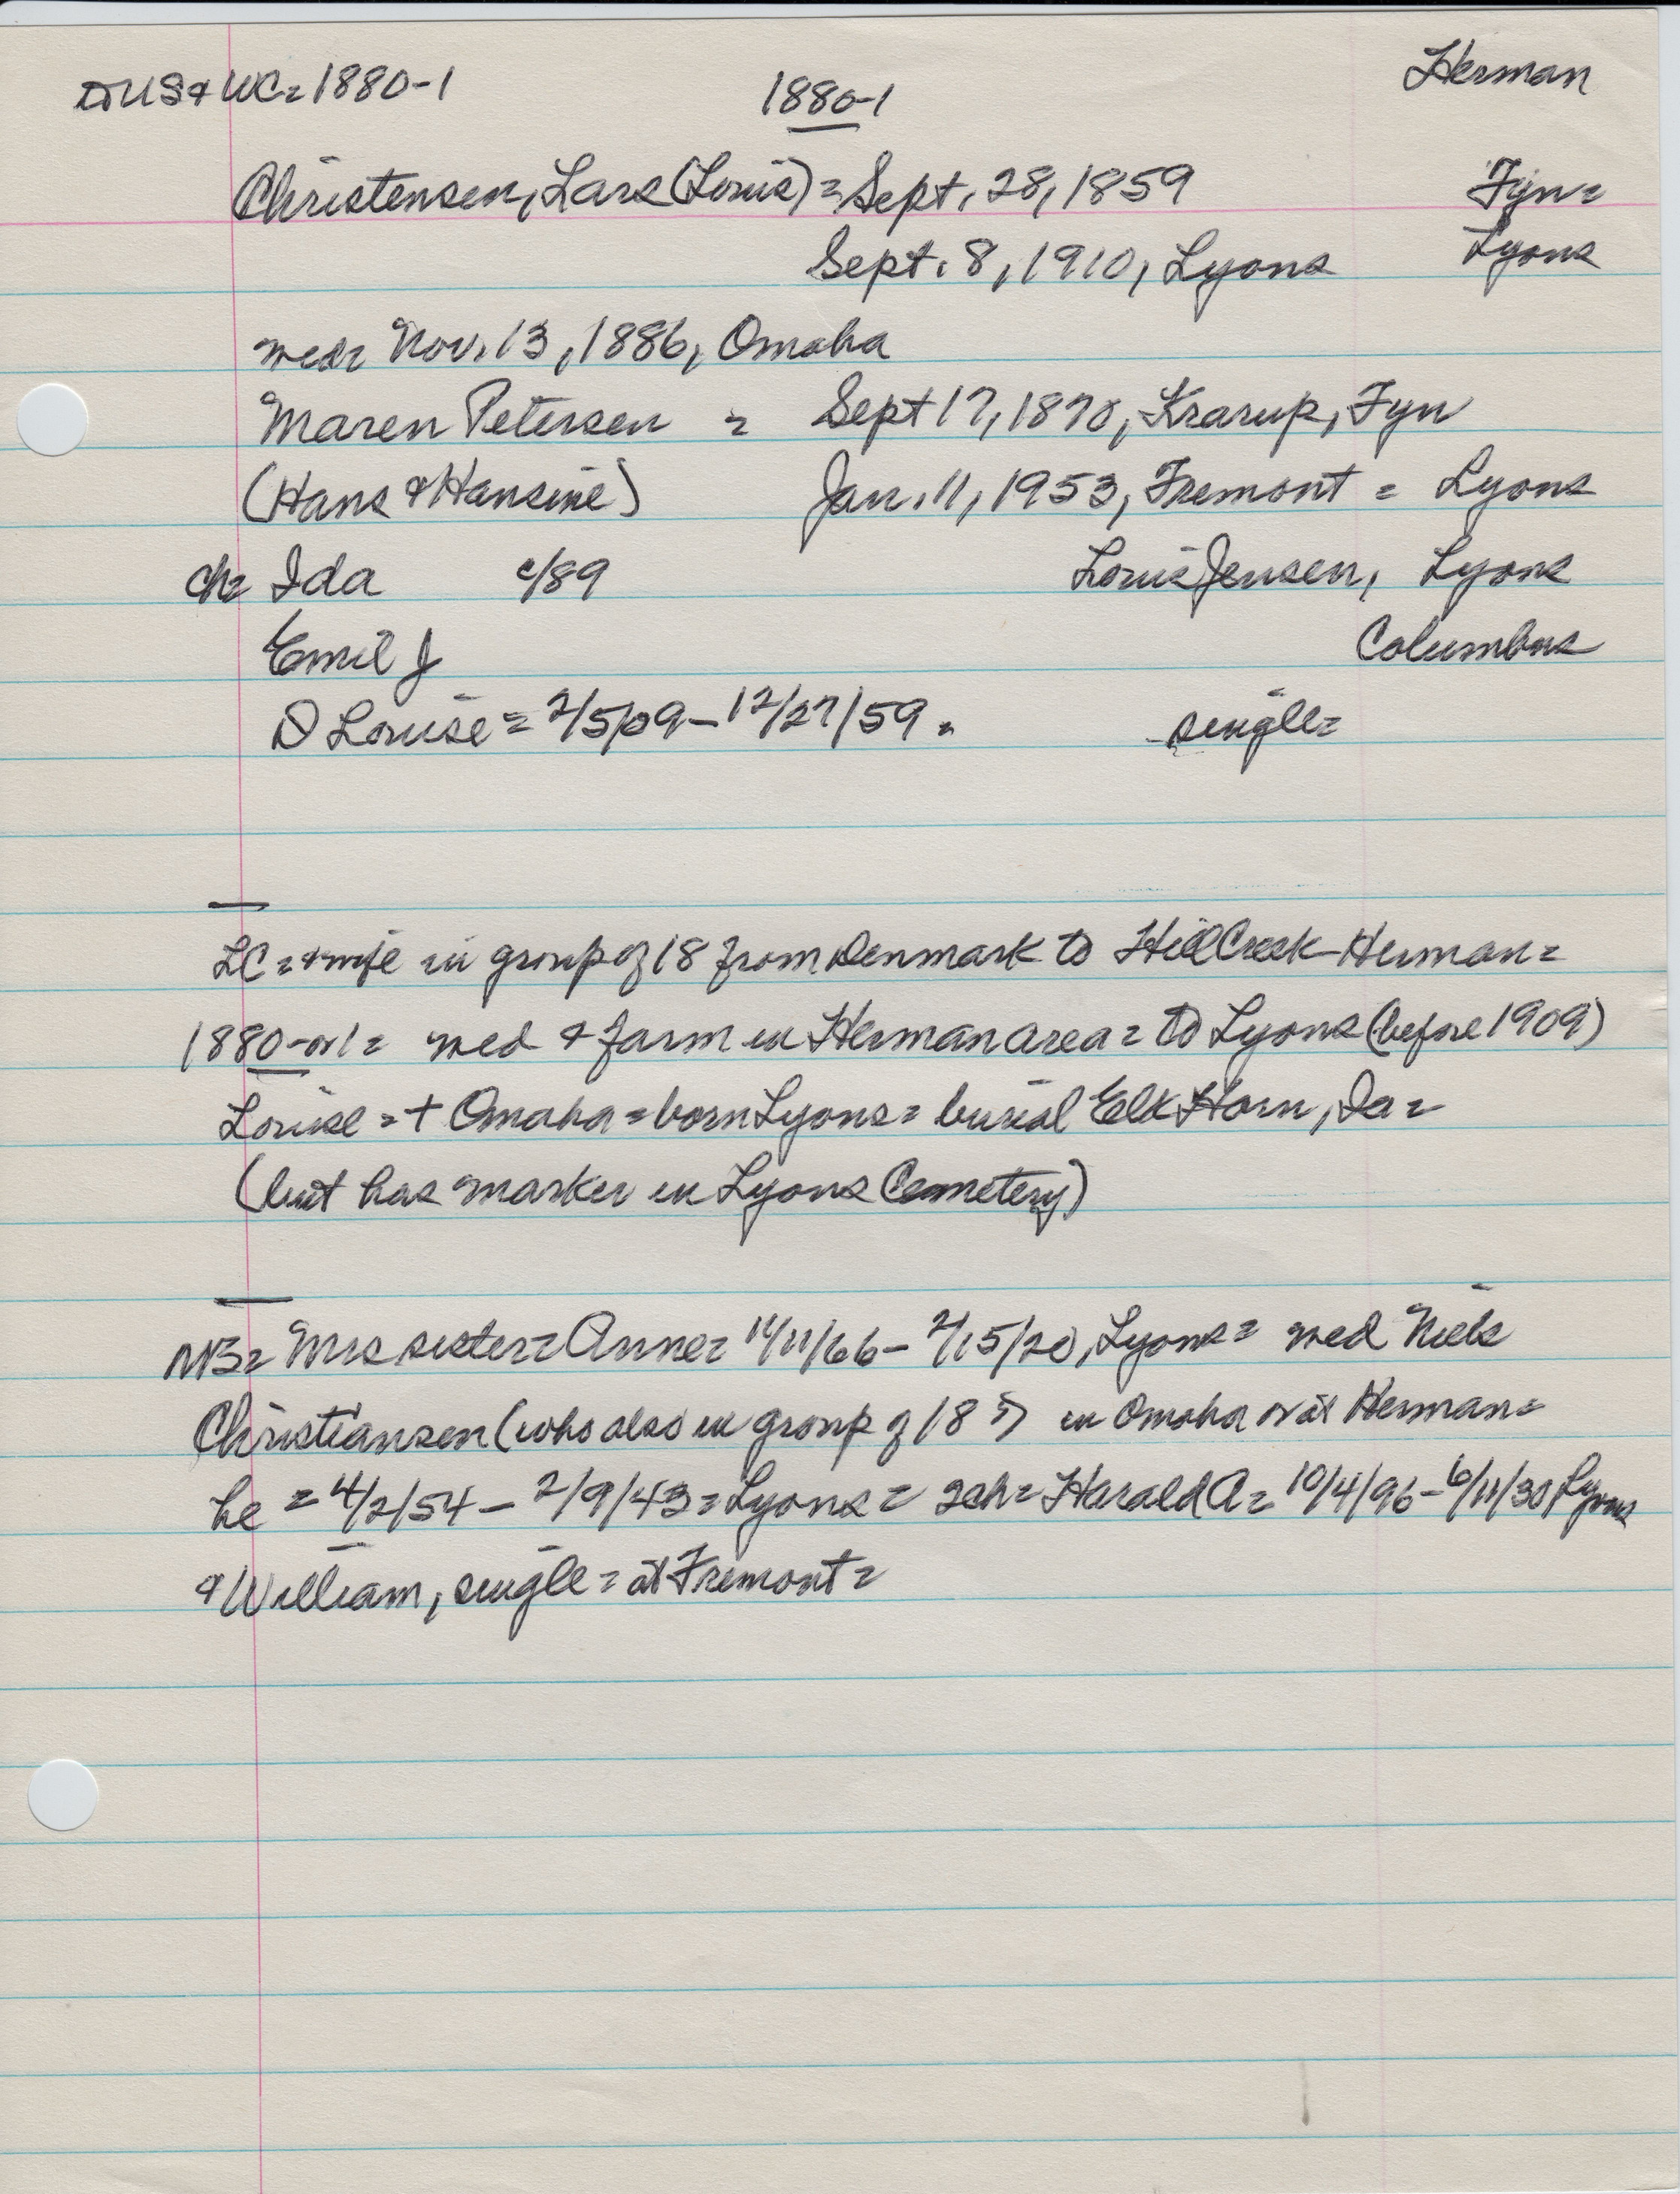 to US & WC = 1880-1 1880-1 Herman
Christensen, Lars (Louis) = Sept. 28, 1859 Fyn =
Sept. 8, 1910, Lyons Lyons
wed = Nov. 13, 1886, Omaha
Maren Petersen = Sept 17, 1870, Krarup, Fyn
(Hans & Hansine) Jan. 11, 1953, Fremont = Lyons
ch = Ida c/89 Louis Jensen, Lyons
Emil J Columbus
D Louise = 2/5/09 - 12/27/59 = single =
LC = & wife in group of 18 from Denmark to Hill Creek - Herman =
1880-or 1 = wed & farm in Herman area = to Lyons (before 1909)
Louise = + Omaha = born Lyons = burial Elk Horn, Ia =
(but has marker in Lyons Cemetery)
NB = Mrs sister = Anne = 11/11/66 - 2/15/20, Lyons = wed Niels
Christiansen (who also in group of 18 ?) in Omaha or at Herman =
he = 4/2/54 - 2/9/43 = Lyons = 2ch = Harald A = 10/4/96 - 6/11/30, Lyons
& William, single = at Fremont =